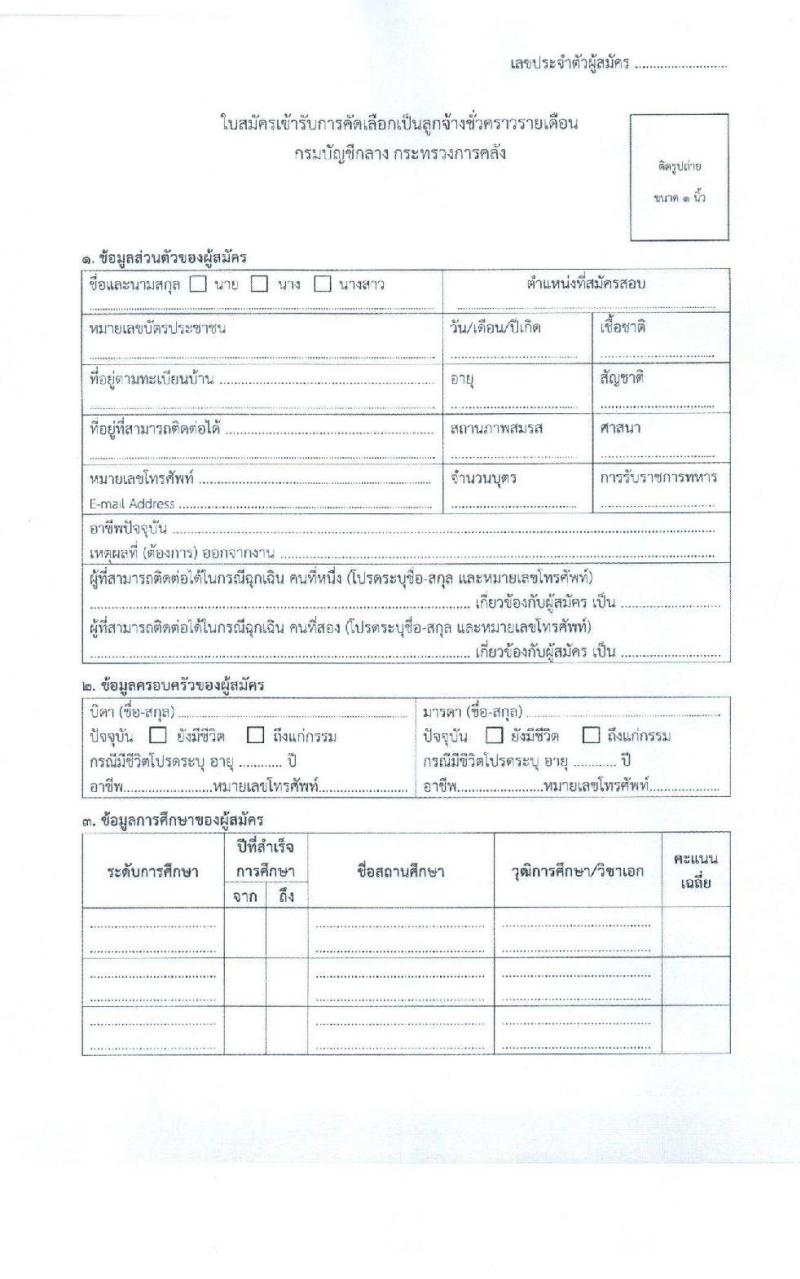 เลขประจำตัวผู้สมัคร ..........................
ใบสมัครเข้ารับการคัดเลือกเป็นลูกจ้างชั่วคราวรายเดือน
กรมบัญชีกลาง กระทรวงการคลัง
ติดรูปถ่าย
ขนาด ๑ นิ้ว
๑. ข้อมูลส่วนตัวของผู้สมัคร
ชื่อและนามสกุล ☐ นาย ☐ นาง ☐ นางสาว
ตำแหน่งที่สมัครสอบ
หมายเลขบัตรประชาชน
วัน/เดือน/ปีเกิด
เชื้อชาติ
ที่อยู่ตามทะเบียนบ้าน ..........................
อายุ
สัญชาติ
ที่อยู่ที่สามารถติดต่อได้ ..........................
สถานภาพสมรส
ศาสนา
หมายเลขโทรศัพท์ ..........................
E-mail Address ..........................
จำนวนบุตร
การรับราชการทหาร
อาชีพปัจจุบัน ..........................
เหตุผลที่ (ต้องการ) ออกจากงาน ..........................
ผู้ที่สามารถติดต่อได้ในกรณีฉุกเฉิน คนที่หนึ่ง (โปรดระบุชื่อ-สกุล และหมายเลขโทรศัพท์)
.......................... เกี่ยวข้องกับผู้สมัคร เป็น ..........................
ผู้ที่สามารถติดต่อได้ในกรณีฉุกเฉิน คนที่สอง (โปรดระบุชื่อ-สกุล และหมายเลขโทรศัพท์)
.......................... เกี่ยวข้องกับผู้สมัคร เป็น ..........................
๒. ข้อมูลครอบครัวของผู้สมัคร
บิดา (ชื่อ-สกุล)..........................
ปัจจุบัน ☐ ยังมีชีวิต ☐ ถึงแก่กรรม
กรณีมีชีวิตโปรดระบุ อายุ ............ ปี
อาชีพ.........................หมายเลขโทรศัพท์.........................
มารดา (ชื่อ-สกุล)..........................
ปัจจุบัน ☐ ยังมีชีวิต ☐ ถึงแก่กรรม
กรณีมีชีวิตโปรดระบุ อายุ ............ ปี
อาชีพ.........................หมายเลขโทรศัพท์....................
๓. ข้อมูลการศึกษาของผู้สมัคร
ระดับการศึกษา
ปีที่สำเร็จ
การศึกษา
จาก ถึง
ชื่อสถานศึกษา
วุฒิการศึกษา/วิชาเอก
คะแนน
เฉลี่ย